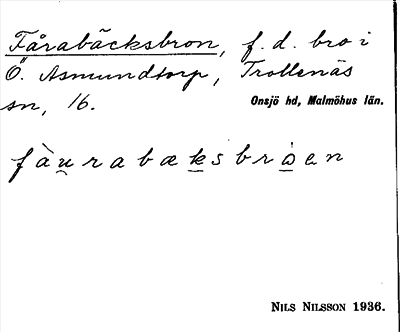 Fårabäcksbron, f.d. bro i
Ö. Asmundtorp, Trollenäs
sn, 16. Onsjö hd, Malmöhus län.
fàu̯rabæḵsbrȯ̱en
NILS NILSSON 1936.